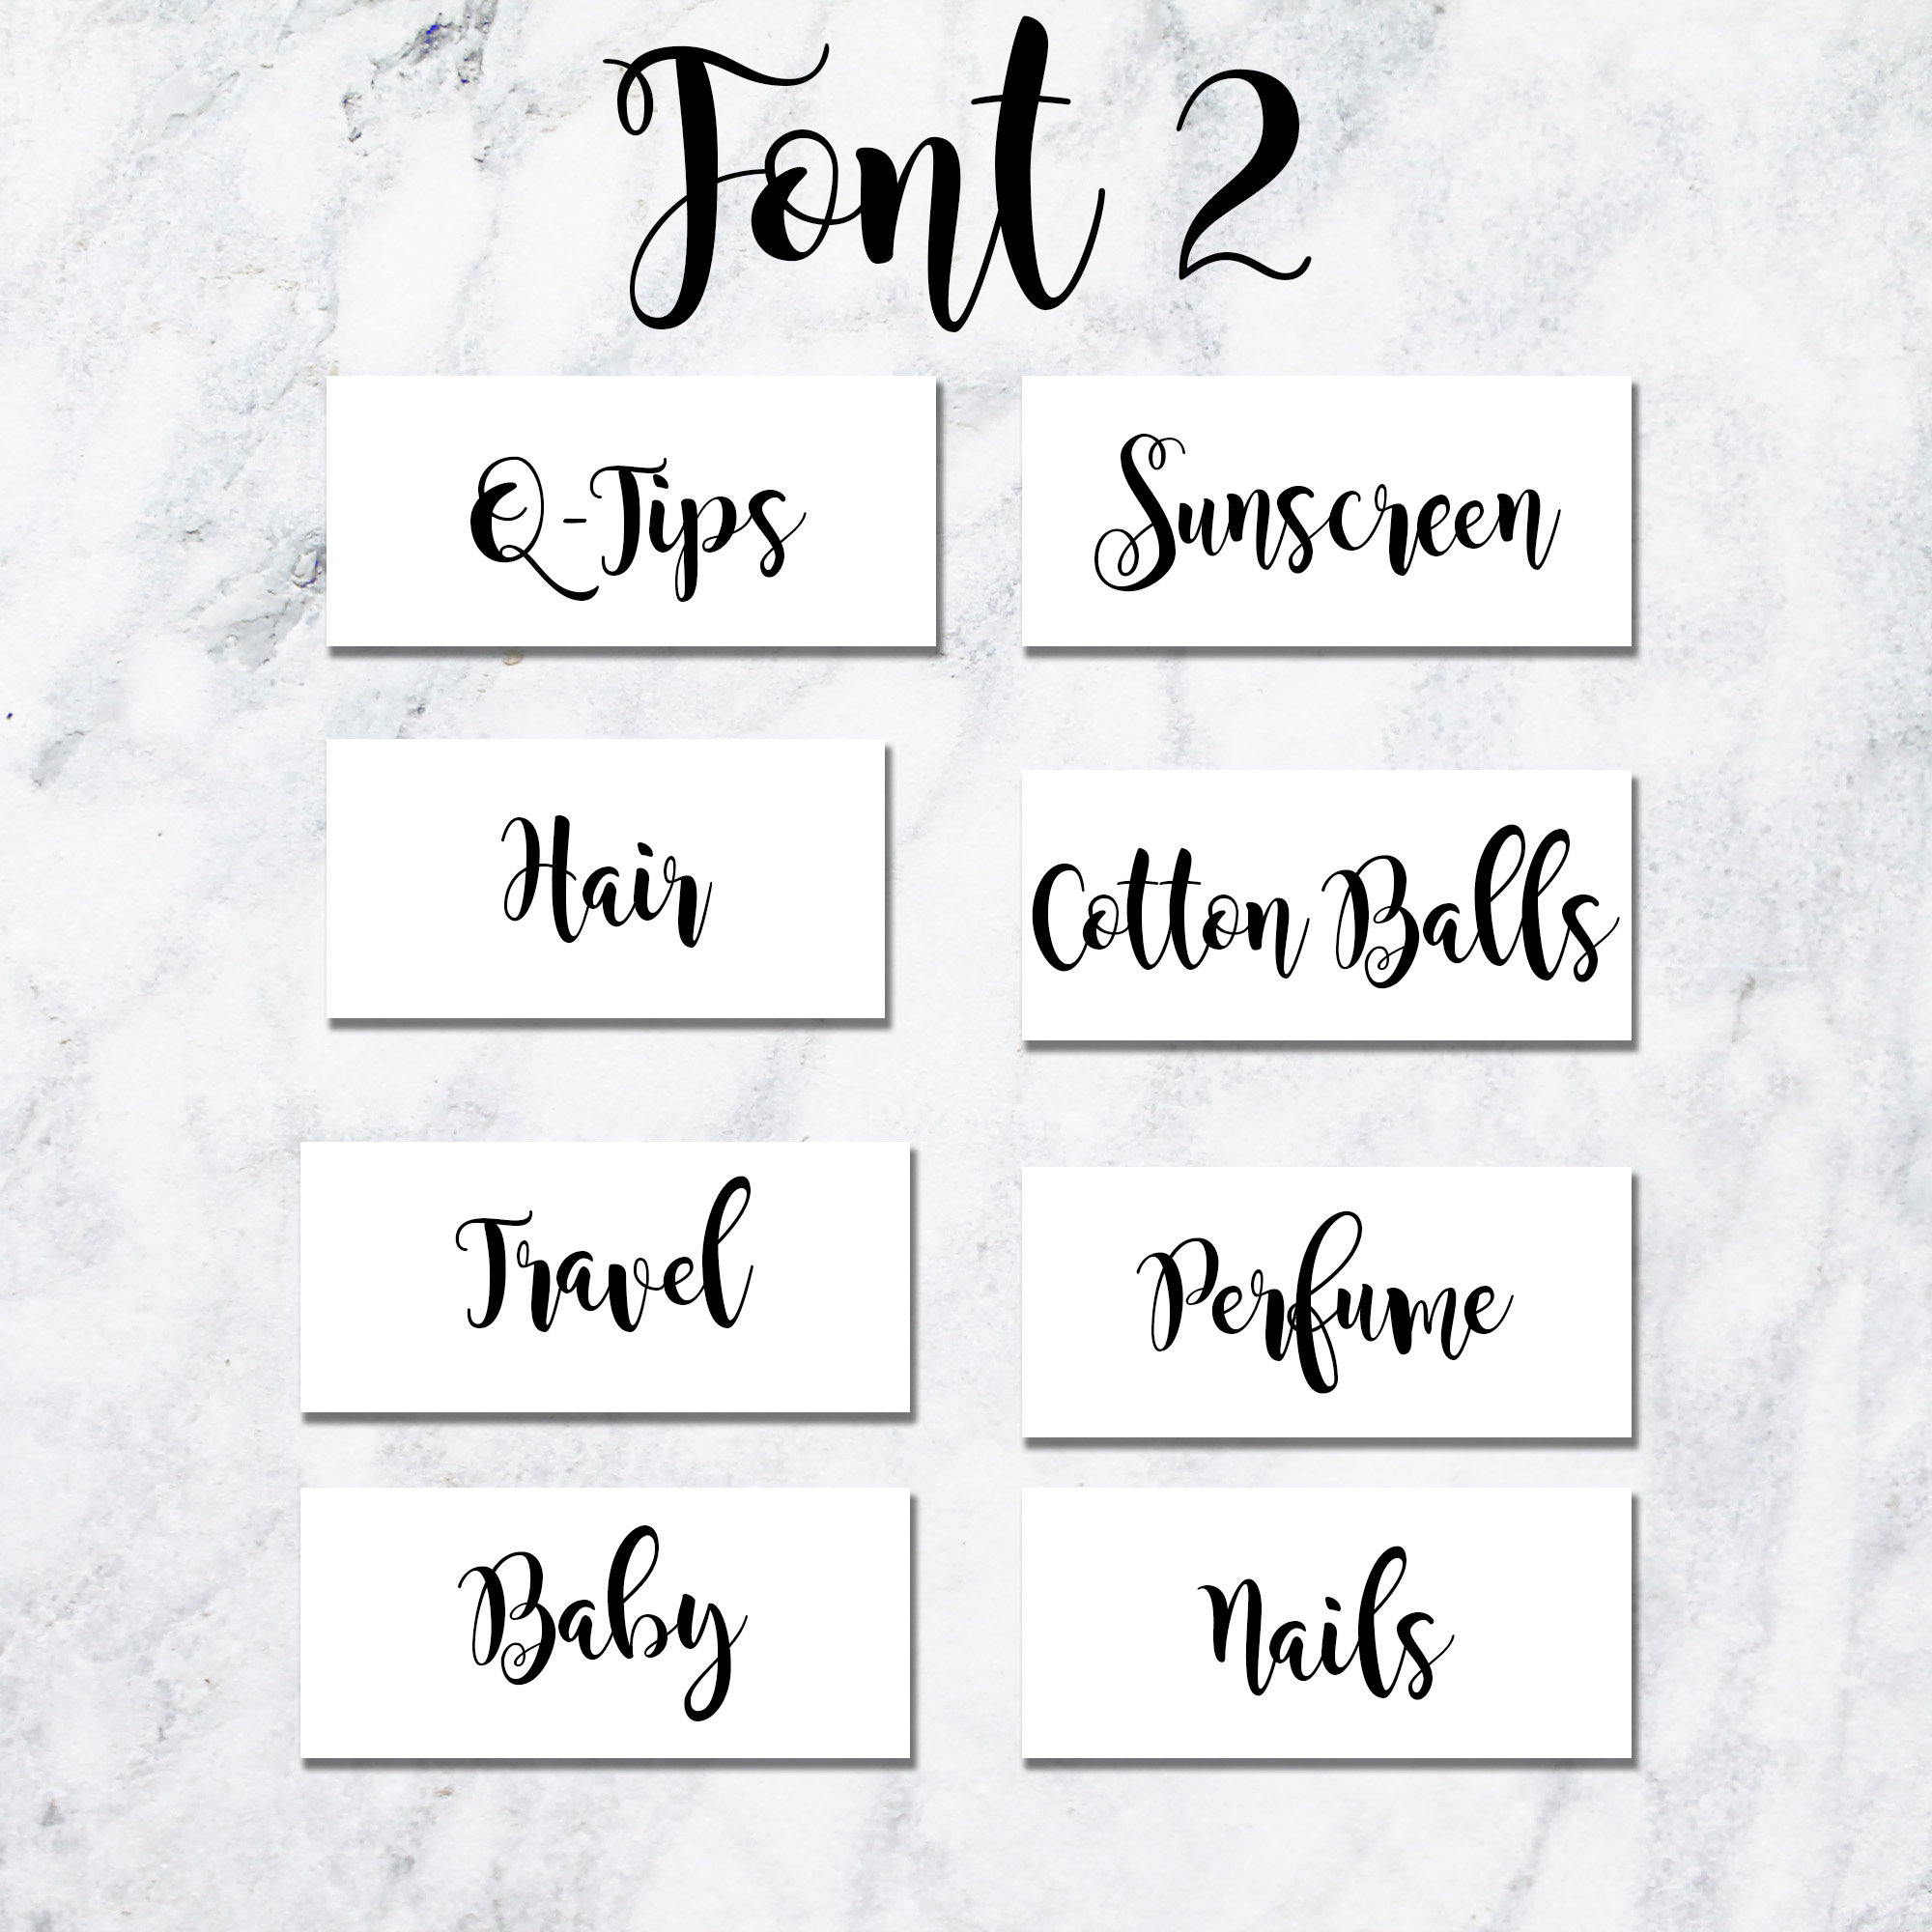 Font 2
Q-Tips
Sunscreen
Hair
Cotton Balls
Travel
Perfume
Baby
Nails